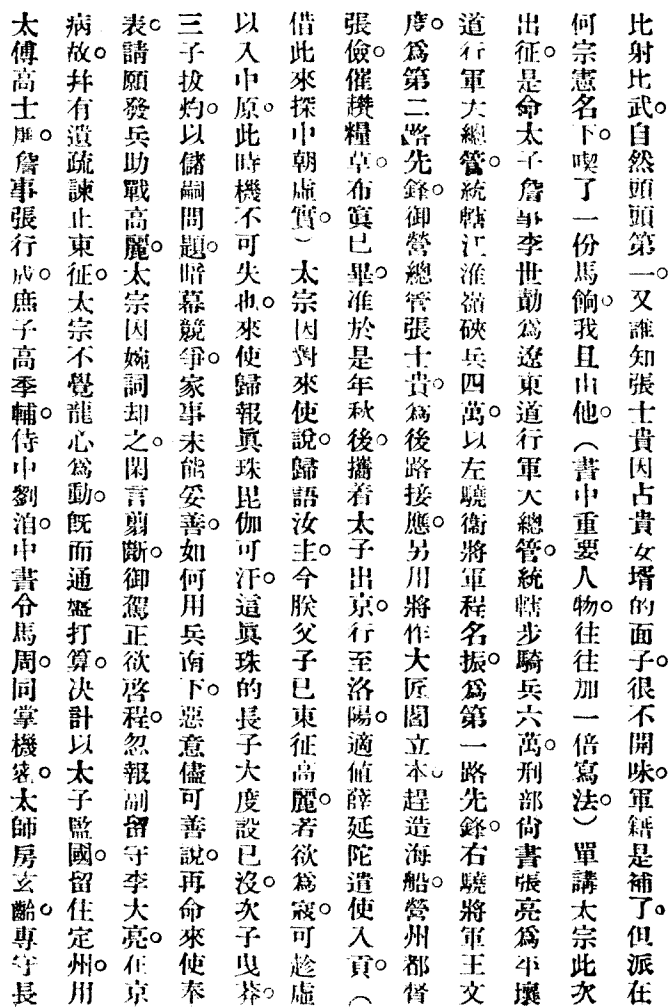 比射比武。自然頭頭第一。又誰知張士貴因占貴女壻的面子。很不開味。軍籍是補了。但派在
何宗憲名下。喫了一份馬餉。我且由他（書中重要人物。往往加一倍寫法。）單講太宗此次
出征。是命太子詹事李世勣爲遼東道行軍大總管。統轄步騎兵六萬。刑部尙書張亮爲平壤
道行軍大總管。統轄江淮嶺硤兵四萬。以左驍衞將軍程名振。爲第一路先鋒。右驍將軍王文
度。爲第二路先鋒。御營總管張士貴。爲後路接應。另用將作大匠閻立本。趕造海船。營州都督
張儉。催趲糧草。布寘已畢。准於是年秋後。攜着太子出京。行至洛陽。適値薛延陀遣使入貢。（
借此來探中朝虛實）太宗因對來使說。歸語汝主。今朕父子已東征高麗。若欲爲寇。可趁虛
以入中原。此時機不可失也。來使歸報眞珠毘伽可汗。這眞珠的長子大度設已沒。次子曳莽。
三子拔灼。以儲嗣問題。暗幕競爭。家事未能妥善。如何用兵南下。惡意儘可善說。再命來使奉
表。請願發兵助戰高麗。太宗因婉詞却之。閑言翦斷。御駕正欲啓程。忽報副留守李大亮。在京
病故。幷有遺疏諫止東征。太宗不覺龍心爲動。旣而通盤打算。决計以太子監國。留住定州。用
太傅高士廉。詹事張行成。庶子高季輔。侍中劉洎。中書令馬周。同掌機密。太師房玄齡。專守長